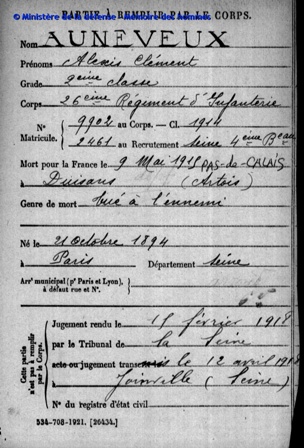 © Ministère de la défense - Mémoire des hommes
PARTIE À REMPLIR PAR LE CORPS.
Nom AUNEVEUX
Prénoms Alexis Clément
Grade 2eme classe
Corps 26eme Régiment d'Infanterie
N° Matricule. 9902 au Corps. — Cl. 1914
2461 au Recrutement Seine 4eme Beau
Mort pour la France le 9 Mai 1915 PAS-de-CALAIS
à Duisans (Artois)
Genre de mort tué à l'ennemi
Né le 21 octobre 1894
à Paris Département Seine
Arrt municipal (pr Paris et Lyon), à défaut rue et N°.
Cette partie n'est pas à remplir par le Corps.
Jugement rendu le 15 février 1918
par le Tribunal de la Seine
acte ou jugement transcris le 12 avril 1918
à Joinville (Seine)
N° du registre d'état civil
534-708-1921. [26434.]